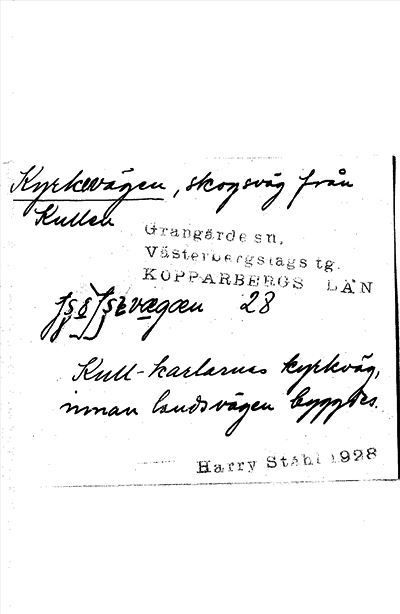 Kyrkvägen, skogsväg från
Kullen
Grangärde sn,
Västerbergslags tg.
KOPPARBERGS LÄN
28
Kull-karlarnas kyrkväg,
innan landsvägen byggdes.
Harry Ståhl 1928